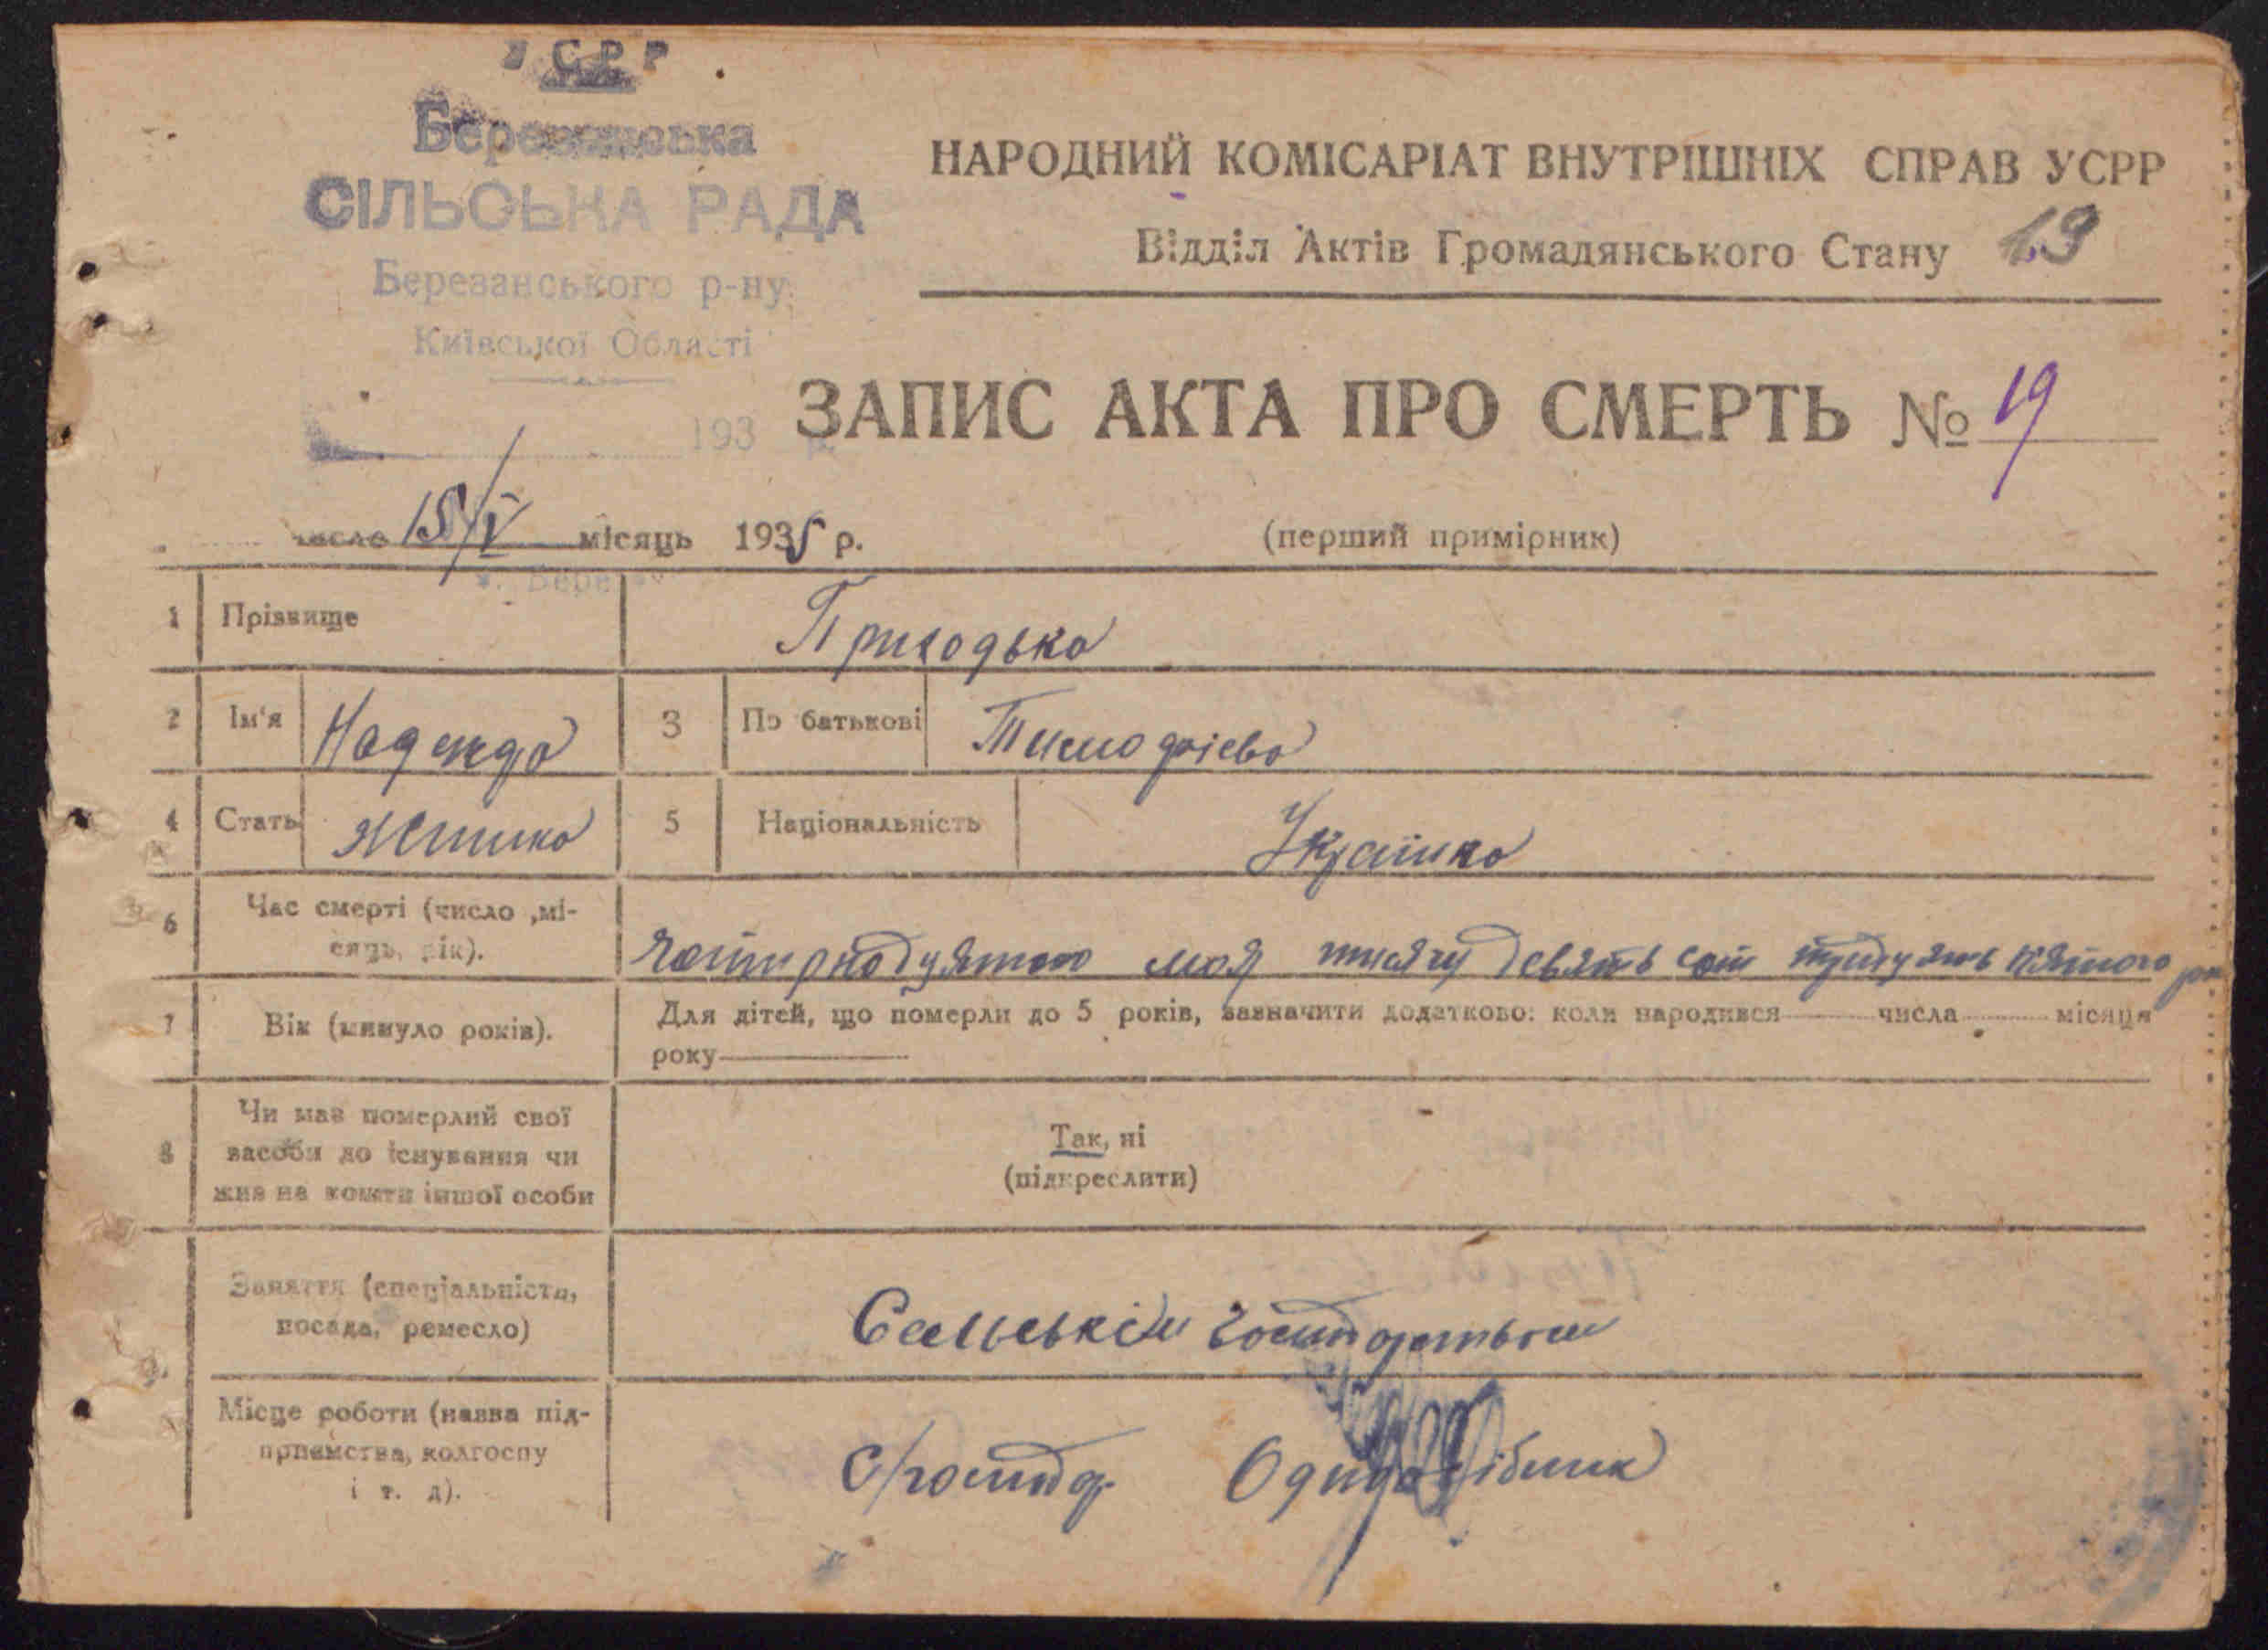 УСРР
Березанська
СІЛЬСЬКА РАДА
Березанського р-ну
Київської Області
193
НАРОДНИЙ КОМІСАРІАТ ВНУТРІШНІХ СПРАВ УСРР
Відділ Актів Громадянського Стану 19
ЗАПИС АКТА ПРО СМЕРТЬ № 19
число 15/V місяць 1935 р.
(перший примірник)
1 Прізвище Приходько
2 Ім'я Надежда 3 По батькові Тимофієва
4 Стать Жинка 5 Національність Українка
6 Час смерті (число, мі-
сяць, рік). мая тисячу девять сот тридцять пятого
7 Вік (минуло років). Для дітей, що померли до 5 років, зазначити додатково: коли народився числа місяця
року
8 Чи мав померлий свої
засоби до існування чи
жив на кошти іншої особи
Так, ні
(підкреслити)
9. Заняття (спеціальність,
посада, ремесло)
Сельським
Місце роботи (назва під-
приємства, колгоспу
і т. д).
с/господар